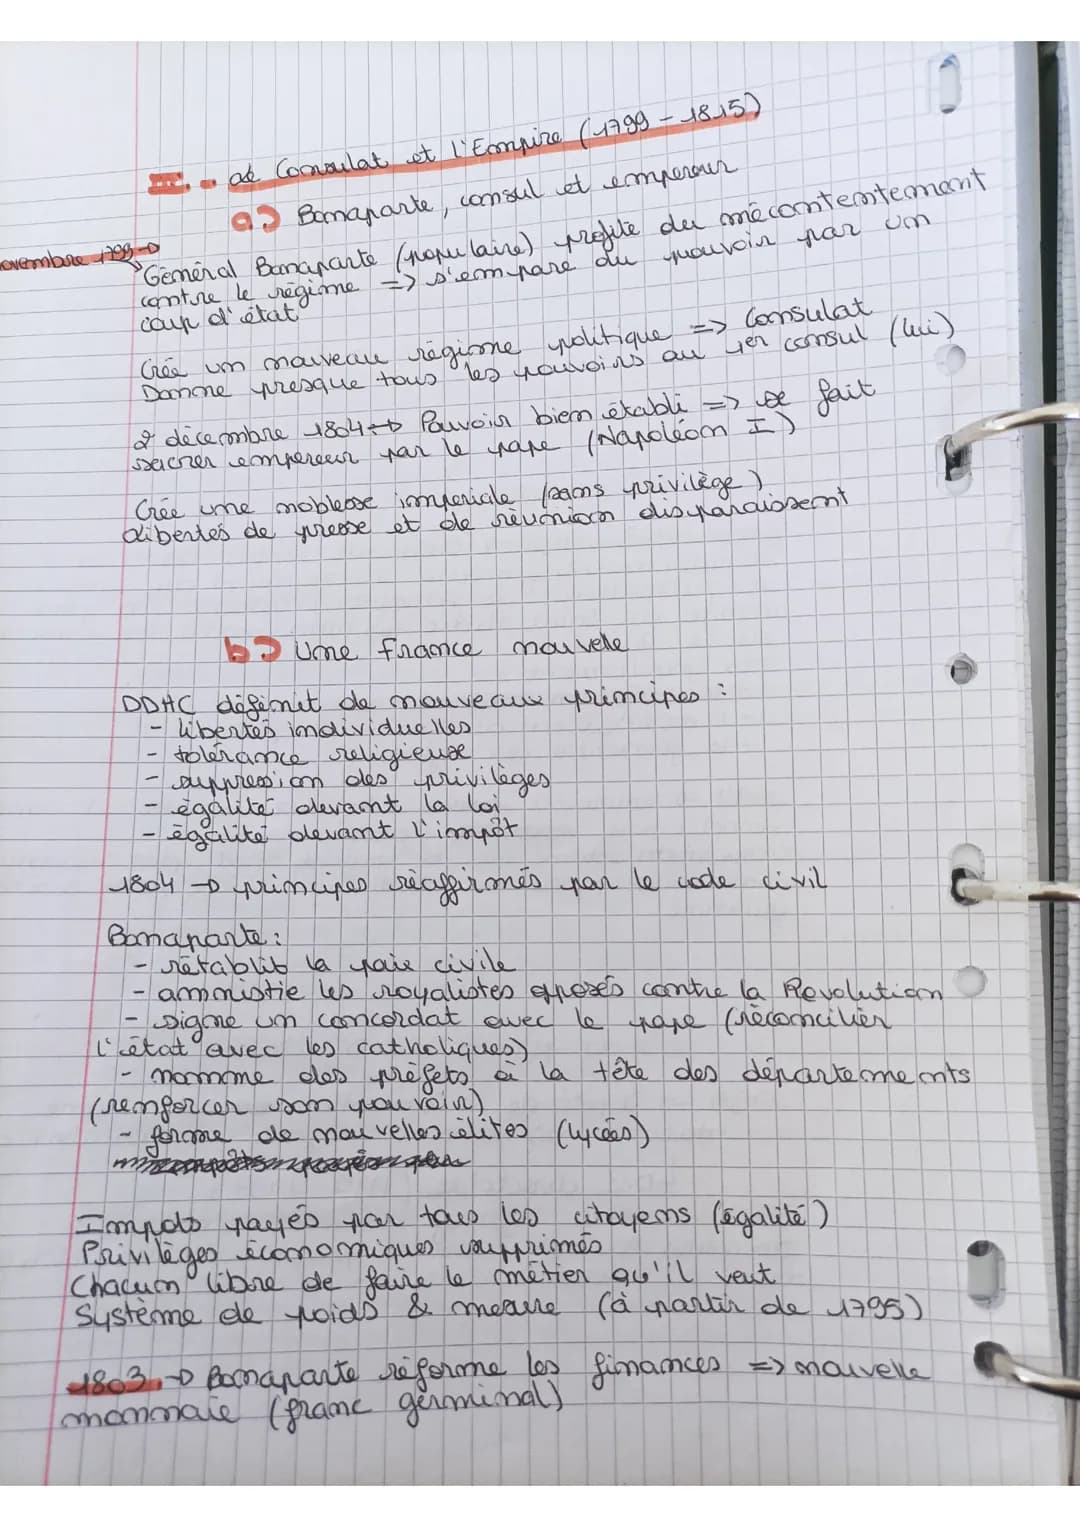 III. Le Consulat et l'Empire (1799 - 1815)
a) Bonaparte, consul et empereur
ovembre 1799 →
Général Bonaparte (populaire) profite du mécontentement
contre le régime => s'empare du pouvoir par un
coup d'état
Crée un nouveau régime politique => Consulat
Donne presque tous les pouvoirs au 1er consul (lui)
2 décembre 1804 → Pouvoir bien établi => se fait
sacrer empereur par le pape (Napoléon I)
Crée une noblesse imperiale (sans privilège)
Libertés de presse et de réunion disparaissent
b) Une France nouvelle
DDHC définit de nouveaux principes :
- libertés individuelles
- tolérance religieuse
- suppression des privilèges
- égalité devant la loi
- égalité devant l'impôt
1804 → principes réaffirmés par le code civil
Bonaparte :
- rétablit la paix civile
- amnistie les royalistes opposés contre la Revolution
- signe un concordat avec le pape (réconcilier
l'état avec les catholiques)
- nomme des préfets à la tête des départements
(renforcer son pouvoir)
- forme de nouvelles élites (lycées)
Impots payés par tous les citoyens (égalité)
Privilèges économiques supprimés
Chacun libre de faire le métier qu'il veut
Système de poids & mesure (à partir de 1795)
1803 → Bonaparte réforme les finances => nouvelle
monnaie (franc germinal)